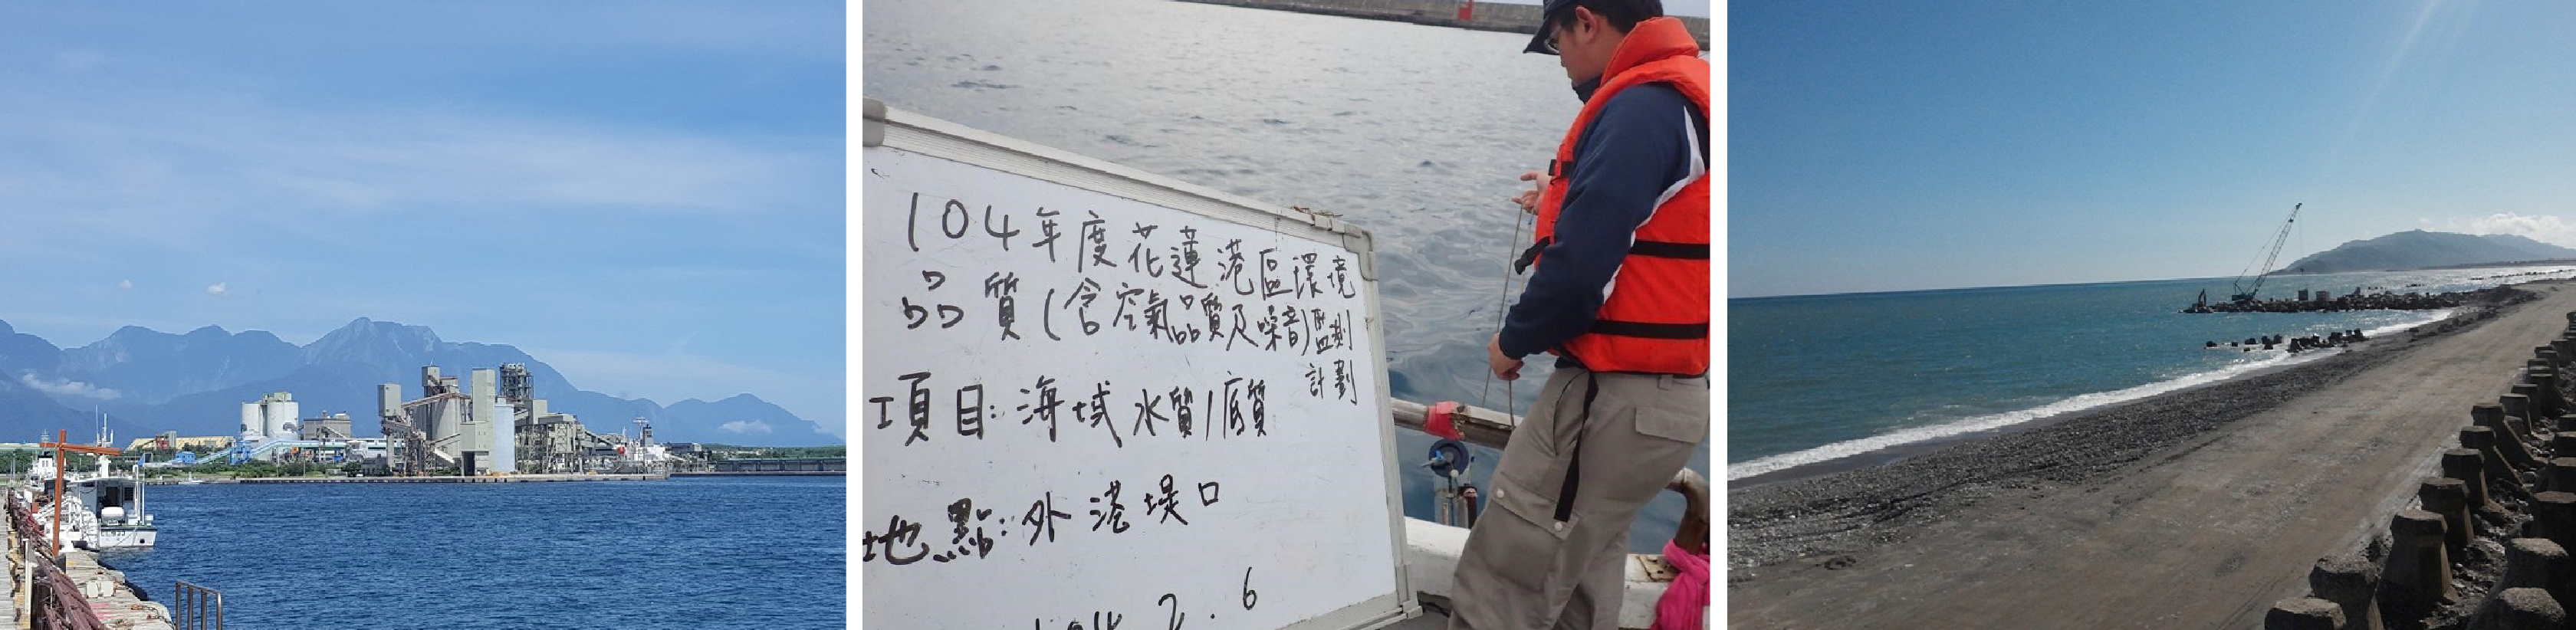 104年度花蓮港區環境
品質(含空氣品質及噪音)監測
計劃
項目:海域水質/底質
地點:外港堤口
104.2.6